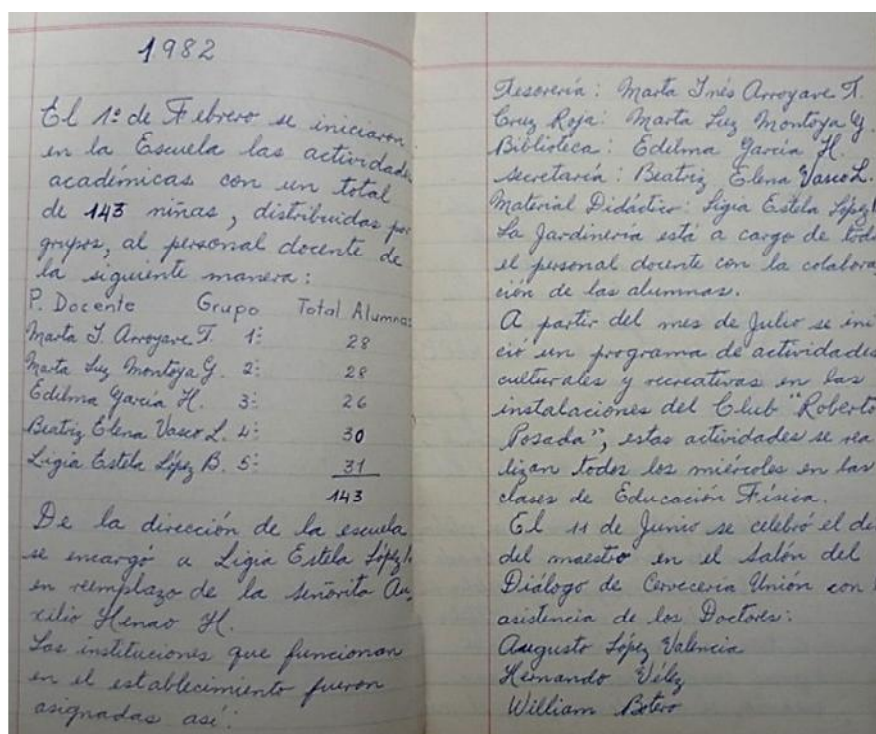 1982
El 1º de Febrero se iniciaron
en la Escuela las actividades
académicas con un total
de 143 niñas, distribuidas por
grupos, al personal docente de
la siguiente manera:
P. Docente Grupo Total Alumnas
Marta I. Arroyave T. 1º 28
Marta Luz Montoya G. 2º 28
Edilma García H. 3º 26
Beatriz Elena Vasco L. 4º 30
Ligia Estela López B. 5º 31
143
De la dirección de la escuela
se encargó a Ligia Estela López
en reemplazo de la señorita Au
xilio Henao H.
Las instituciones que funcionan
en el establecimiento fueron
asignadas así:
Tesorería: Marta Inés Arroyave T.
Cruz Roja: Marta Luz Montoya G.
Biblioteca: Edilma García H.
secretaría: Beatriz Elena Vasco L.
Material Didáctico: Ligia Estela López
La Jardinería está a cargo de todo
el personal docente con la colabora
ción de las alumnas.
A partir del mes de Julio se ini
ció un programa de actividades
culturales y recreativas en las
instalaciones del Club "Roberto
Posada", estas actividades se rea
lizan todos los miércoles en las
clases de Educación Física.
El 11 de Junio se celebró el
del maestro en el salón del
Diálogo de Cervecería Unión con
asistencia de los Doctores:
Augusto López Valencia
Hernando Vélez
William Botero